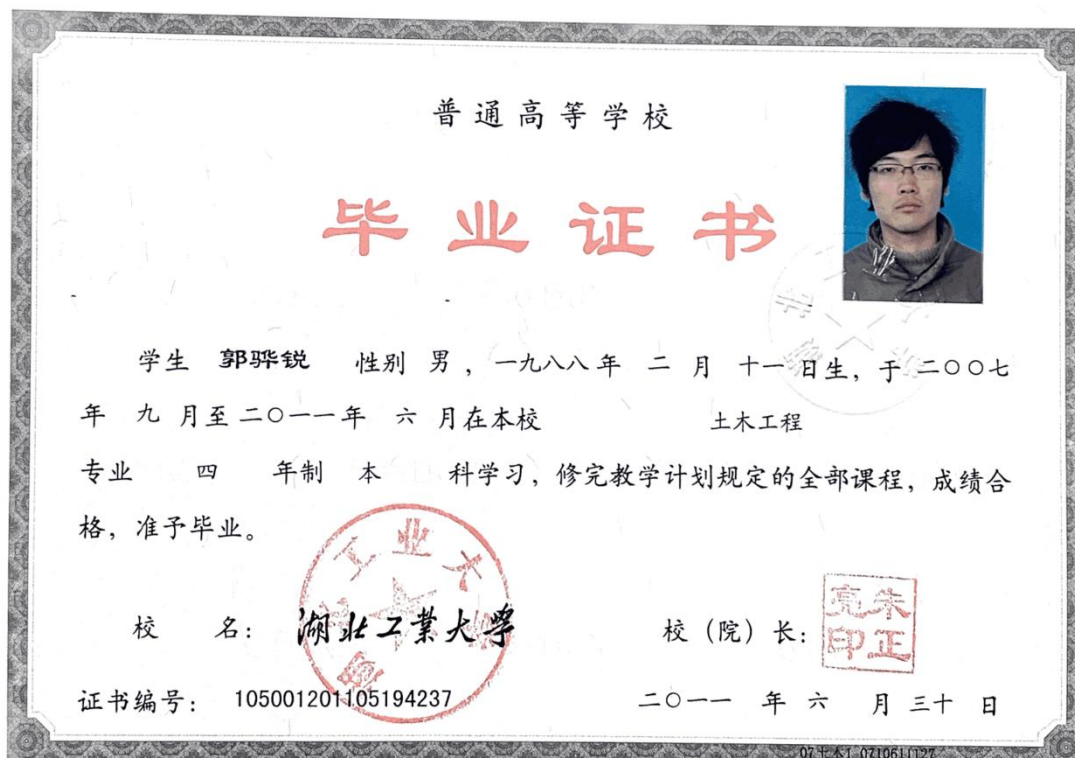 普通高等学校
毕业证书
学生 郭骅锐 性别 男，一九八八年 二 月 十一 日生，于 二〇〇七
年 九 月至 二〇一一年 六 月在本校 土木工程
专业 四 年制 本 科学习，修完教学计划规定的全部课程，成绩合
格，准予毕业。
工业大
校 名： 湖北工業大學
校（院）长： 朱正亮印
证书编号： 105001201105194237
二〇一一 年 六 月 三十 日
07土木1 0710611127